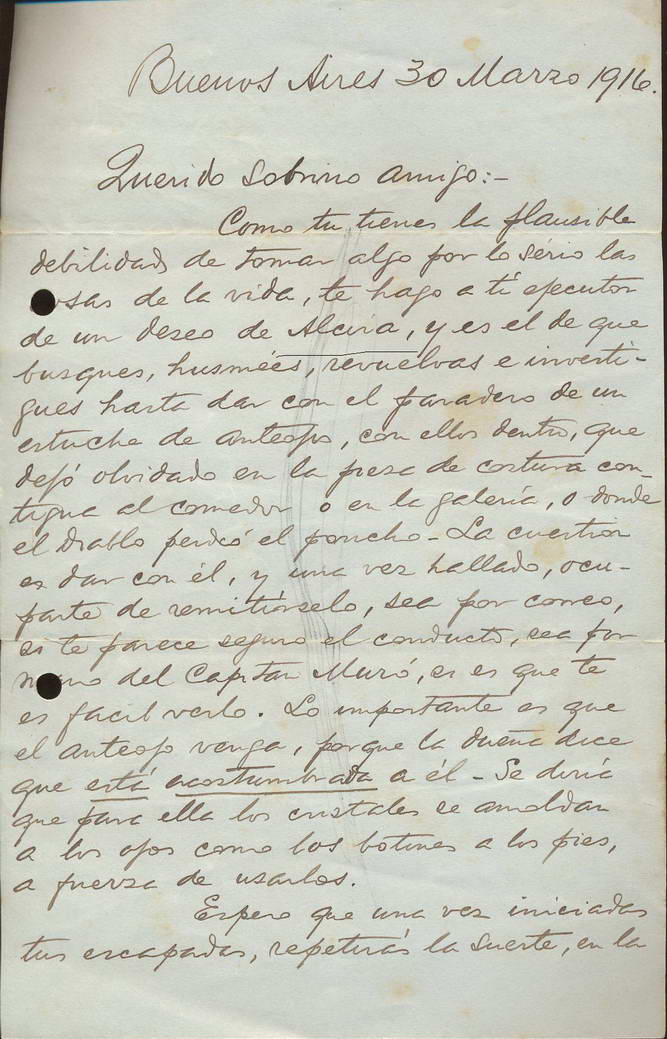 Buenos Aires 30 Marzo 1916.
Querido sobrino amigo:-
Como tu tienes la plausible
debilidad de tomar algo por lo sério las
cosas de la vida, te hago a tí ejecutor
de un deseo de Alcira, y es el de que
busques, husmées, revuelvas e investi-
gues hasta dar con el paradero de un
estuche de anteojos, con ellos dentro, que
dejó olvidado en la pieza de costura con-
tigua al comedor o en la galería, o donde
el diablo perdió el poncho - La cuestion
es dar con él, y una vez hallado, ocu-
parte de remitirselo, sea por correo,
si te parece seguro el conducto, sea por
mano del Capitan Muró, si es que te
es facil verlo. Lo importante es que
el anteojo venga, porque la dueña dice
que está acostumbrada a él - Se diría
que para ella los cristales se amoldan
a los ojos como los botines a los pies,
a fuerza de usarlos.
Espero que una vez iniciadas
tus escapadas, repetirás la suerte, en la